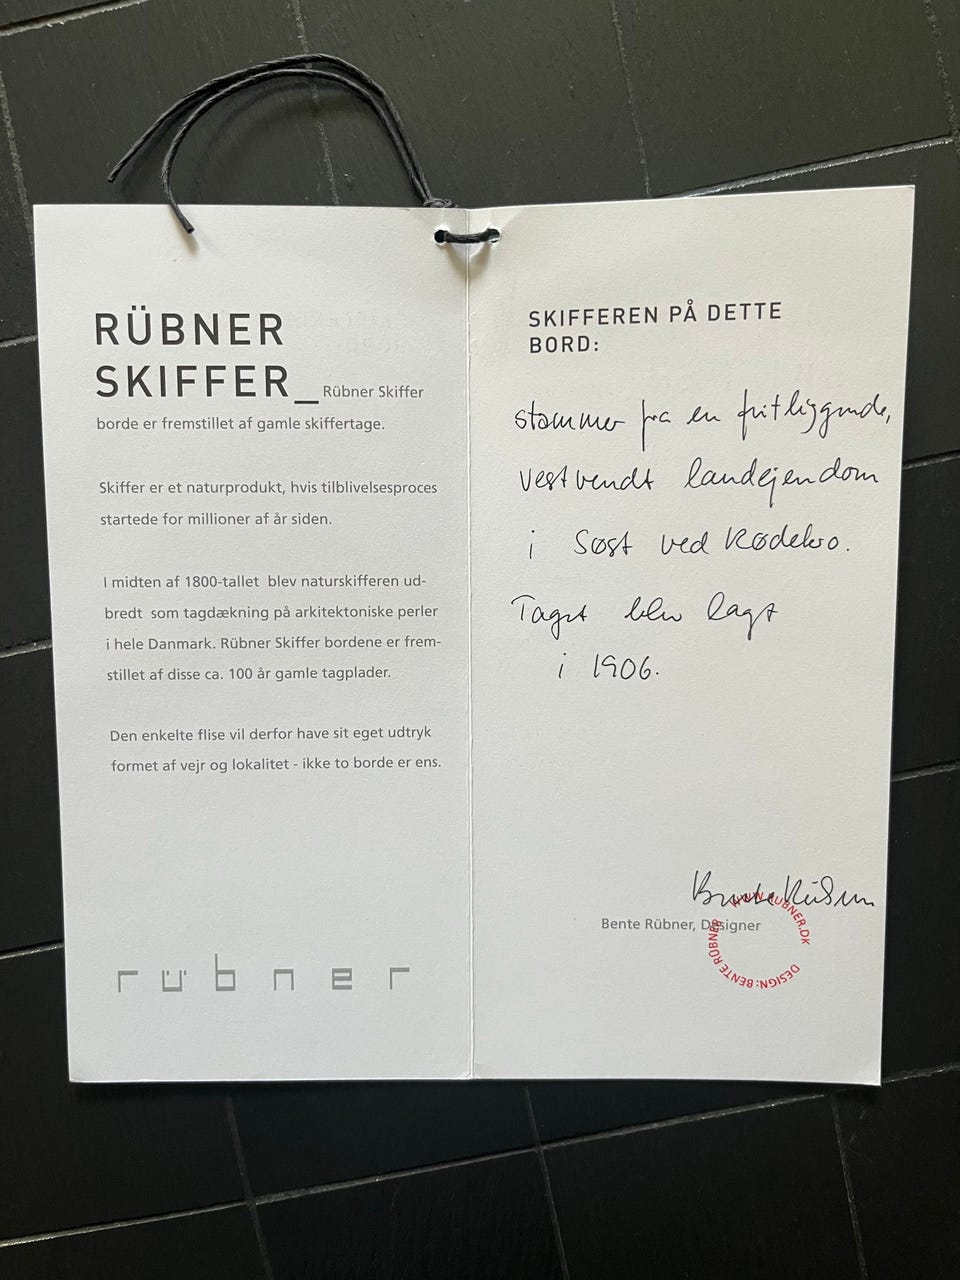 RÜBNER
SKIFFER_ Rübner Skiffer
borde er fremstillet af gamle skiffertage.
Skiffer er et naturprodukt, hvis tilblivelsesproces
startede for millioner af år siden.
I midten af 1800-tallet blev naturskifferen ud-
bredt som tagdækning på arkitektoniske perler
i hele Danmark. Rübner Skiffer bordene er frem-
stillet af disse ca. 100 år gamle tagplader.
Den enkelte flise vil derfor have sit eget udtryk
formet af vejr og lokalitet - ikke to borde er ens.
rübner
SKIFFEREN PÅ DETTE
BORD:
stammer fra en fritliggende,
vestvendt landejendom
i Søst ved Rødekro.
Taget blev lagt
i 1906.
Bente Rübner
Bente Rübner, Designer
WWW.RUBNER.DK
DESIGN: BENTE RÜBNER